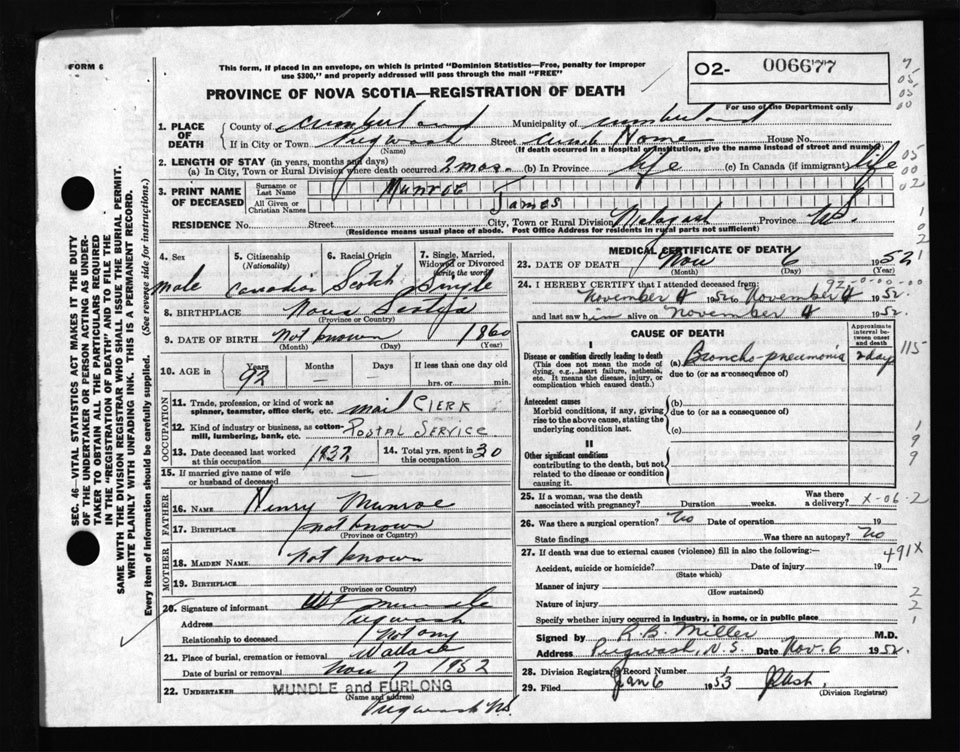 FORM 6
This form, if placed in an envelope, on which is printed "Dominion Statistics—Free, penalty for improper
use $300," and properly addressed will pass through the mail "FREE"
02- 006677
PROVINCE OF NOVA SCOTIA—REGISTRATION OF DEATH
For use of the Department only
1. PLACE OF DEATH County of Cumberland Municipality of Cumberland
If in City or Town Pugwash Street Home House No.
(Name) (If death occurred in a hospital or institution, give the name instead of street and number)
2. LENGTH OF STAY (in years, months and days)
(a) In City, Town or Rural Division where death occurred 2 mos. (b) In Province life (c) In Canada (if immigrant) life
3. PRINT NAME OF DECEASED Surname or Last Name Munroe
All Given or Christian Names James
RESIDENCE No. Street City, Town or Rural Division Malagash Province N.S.
(Residence means usual place of abode. Post Office Address for residents in rural parts not sufficient)
4. Sex male
5. Citizenship (Nationality) Canadian
6. Racial Origin Scotch
7. Single, Married, Widowed or Divorced (write the word) Single
8. BIRTHPLACE Nova Scotia
(Province or Country)
9. DATE OF BIRTH Not known 1860
(Month) (Day) (Year)
10. AGE Years 92 Months — Days If less than one day hrs. or min.
OCCUPATION
11. Trade, profession or kind of work as spinner, teamster, office clerk, etc. mail CLERK
12. Kind of industry or business, as cotton-mill, lumbering, bank, etc. POSTAL SERVICE
13. Date deceased last worked at this occupation 1932
14. Total yrs. spent in this occupation 30
15. If married give name of wife or husband of deceased
FATHER
16. NAME Henry Munroe
17. BIRTHPLACE not known
(Province or Country)
MOTHER
18. MAIDEN NAME not known
19. BIRTHPLACE
(Province or Country)
20. Signature of informant Mundle
Address Pugwash
Relationship to deceased Not any
21. Place of burial, cremation or removal Wallace
Date of burial or removal Nov 7 1952
22. UNDERTAKER MUNDLE and FURLONG
(Name and address)
Pugwash NS.
MEDICAL CERTIFICATE OF DEATH
23. DATE OF DEATH Nov 6 1952
(Month) (Day) (Year)
24. I HEREBY CERTIFY that I attended deceased from:
November 4 1952 to November 4 1952
and last saw him alive on November 4 1952.
CAUSE OF DEATH
Approximate interval between onset and death
I
Disease or condition directly leading to death (a) Broncho-pneumonia
(This does not mean the mode of dying, e.g., heart failure, asthenia, etc. It means the disease, injury, or complication which caused death.)
due to (or as a consequence of)
Antecedent causes
Morbid conditions, if any, giving rise to the above cause, stating the underlying condition last.
(b)
due to (or as a consequence of)
(c)
II
Other significant conditions
contributing to the death, but not related to the disease or condition causing it.
25. If a woman, was the death associated with pregnancy? Duration weeks. Was there a delivery? X-06-2
26. Was there surgical operation? No Date of operation 19
State findings Was there an autopsy? No
27. If death was due to external causes (violence) fill in also the following:— 491X
Accident, suicide or homicide? Date of injury 19
(State which)
Manner of injury
(How sustained)
Nature of injury
Specify whether injury occurred in industry, in home, or in public place
Signed by R.B. Miller M.D.
Address Pugwash, N.S. Date Nov. 6 1952.
28. Division Registrar's Record Number
29. Filed Jan 6 1953
(Division Registrar)
SEC. 46—VITAL STATISTICS ACT MAKES IT THE DUTY
OF THE UNDERTAKER OR PERSON ACTING AS UNDER-
TAKER TO OBTAIN ALL THE PARTICULARS REQUIRED
IN THE "REGISTRATION OF DEATH" AND TO FILE THE
SAME WITH THE DIVISION REGISTRAR WHO SHALL ISSUE THE BURIAL PERMIT.
WRITE PLAINLY WITH UNFADING INK. THIS IS A PERMANENT RECORD.
Every item of information should be carefully supplied. (See reverse side for instructions.)